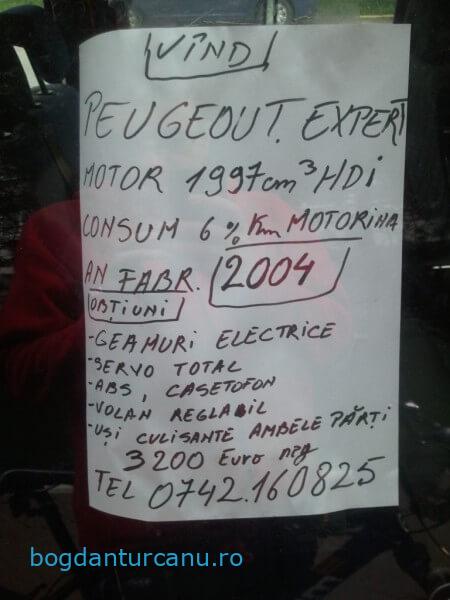 VÎND
PEUGEOUT. EXPERT
MOTOR 1997cm³ HDi
CONSUM 6 % Km MOTORINA
AN FABR. 2004
OBȚIUNI
-GEAMURI ELECTRICE
-SERVO TOTAL
-ABS, CASETOFON
-VOLAN REGLABIL
-UȘI CULISANTE AMBELE PĂRȚI
3200 Euro neg
TEL 0742.160825
bogdanturcanu.ro